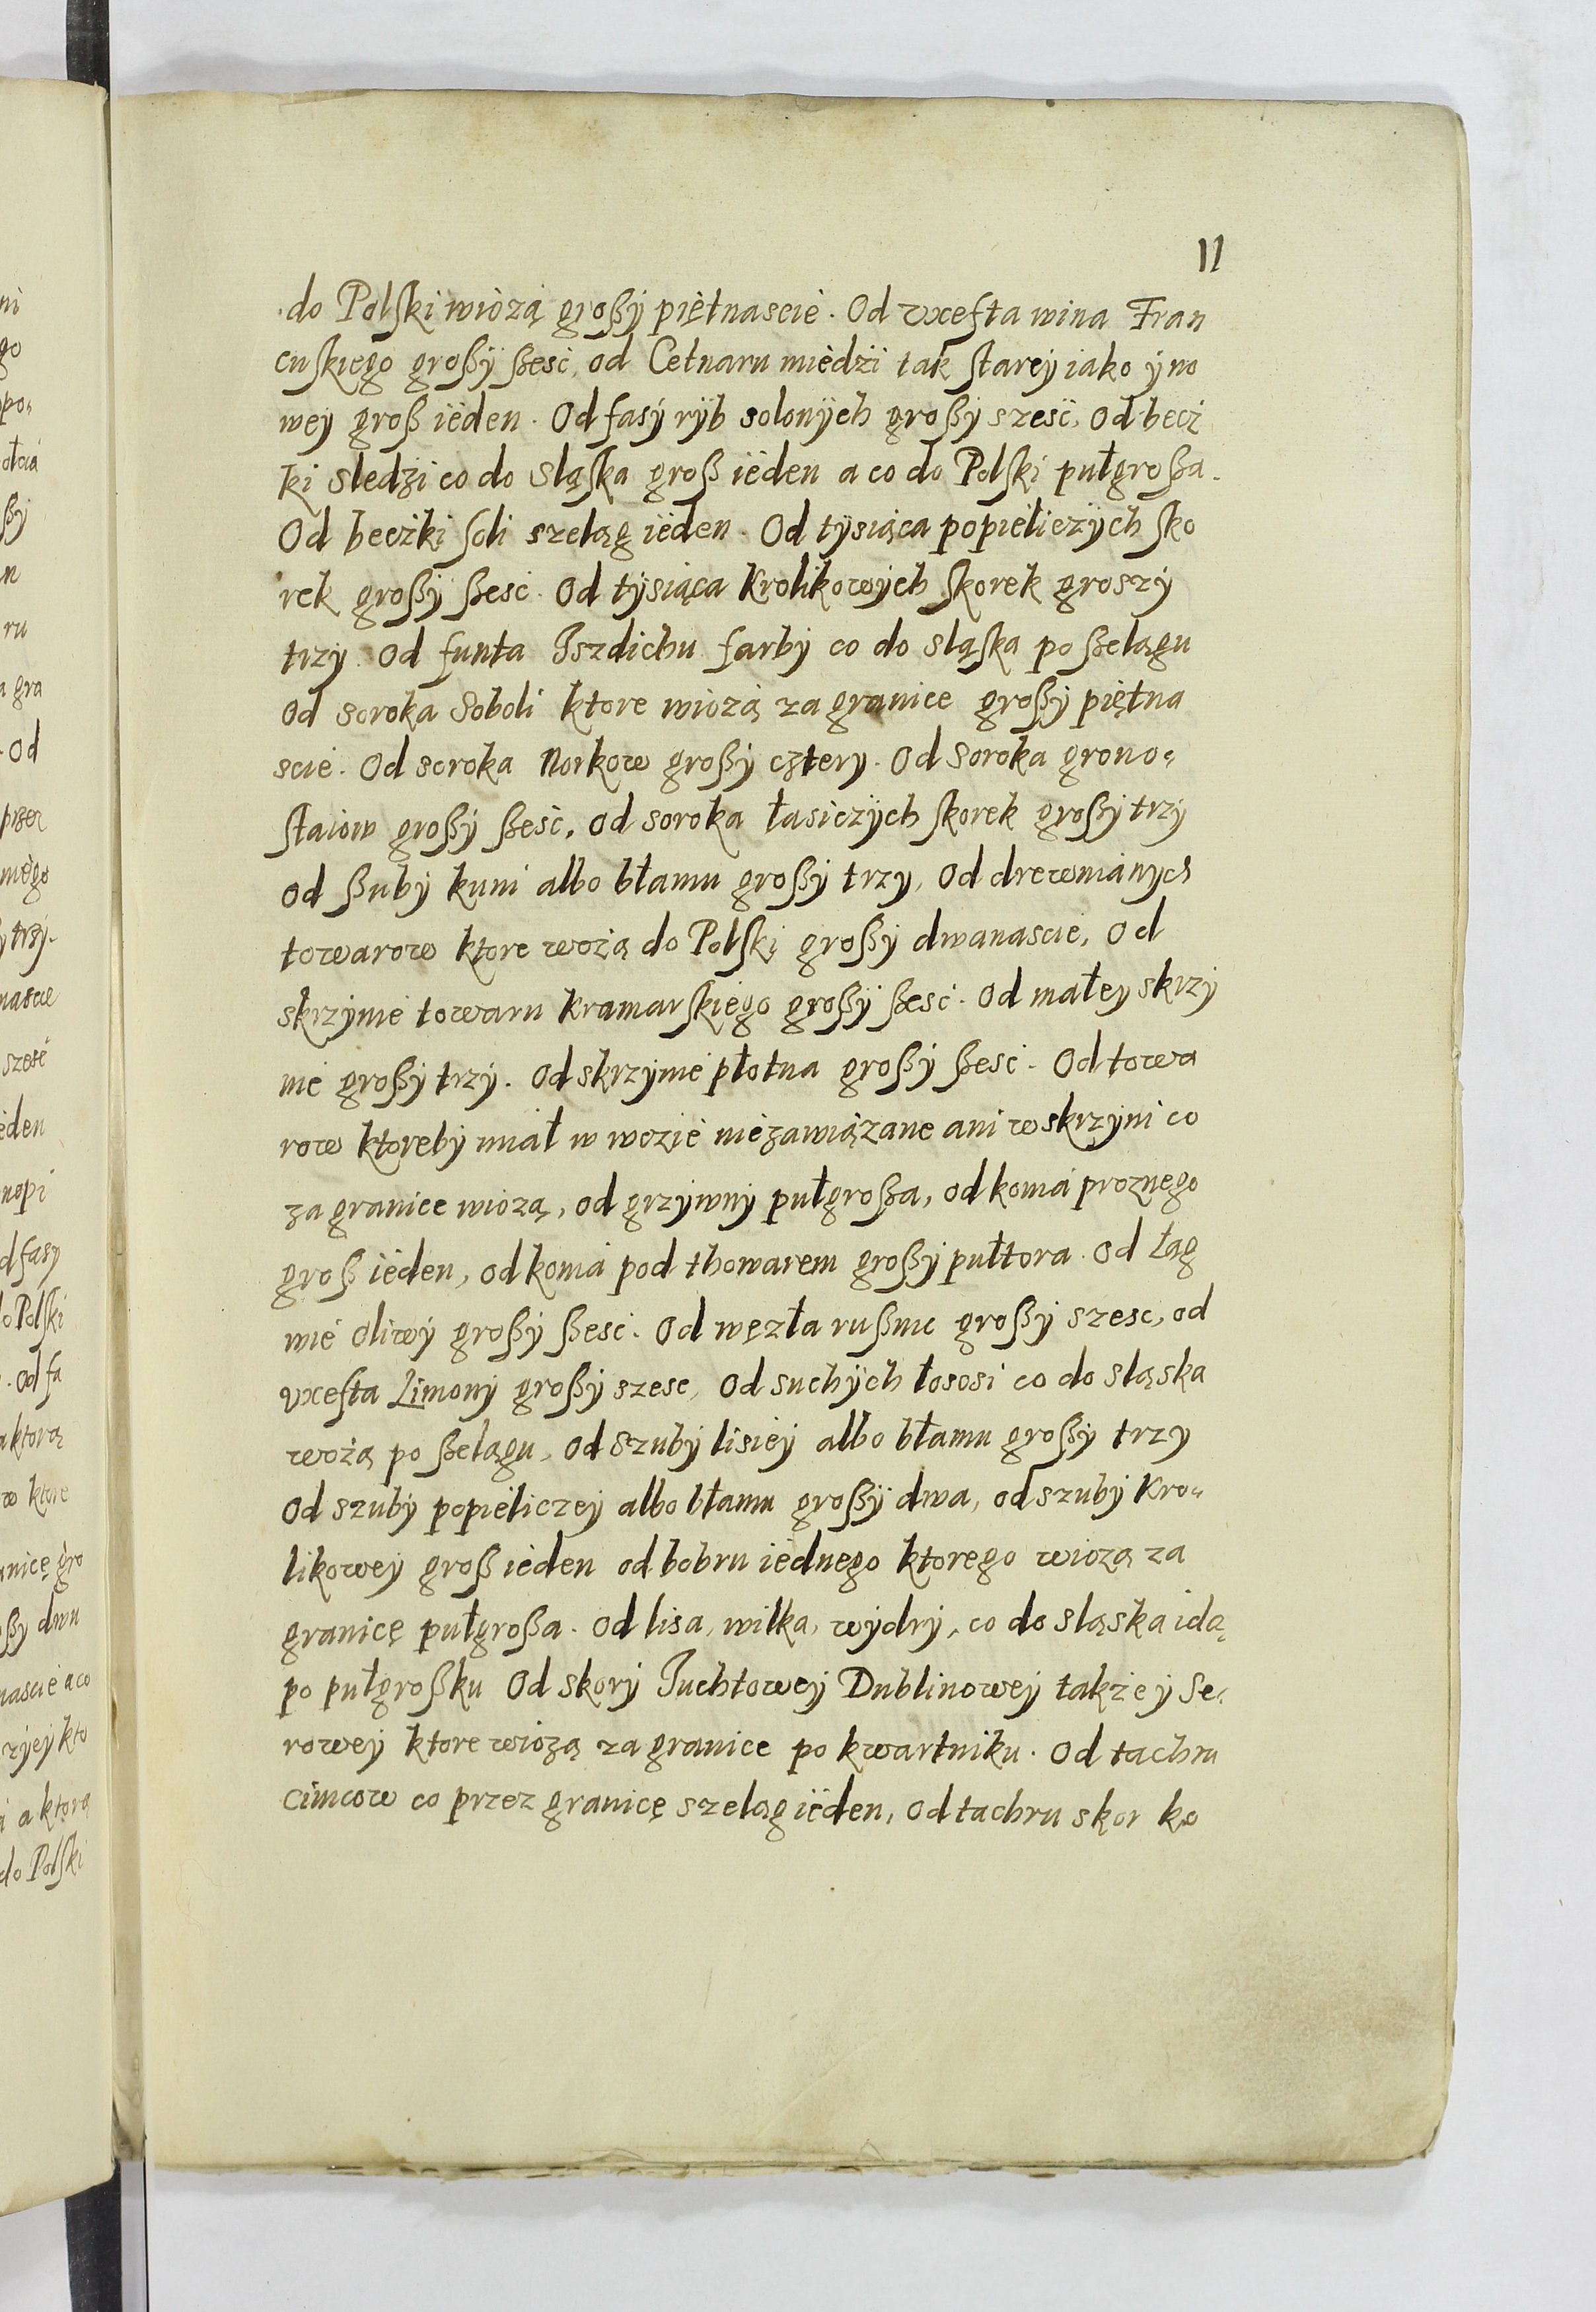 11
do Polſki wiozą großy piętnascie. Od vxefta wina Fran
cuſkiego großy ßesć, od Cetnaru miedzi tak ſtarey iako y no
wey groß ieden. Od fasy ryb solonych großy szesć, Od becż
ki sledzi co do Sląſka groß ieden a co do Polſki pułgroßa.
Od beczki ſoli szeląg ieden. Od tysiąca popieliczych ſko
rek großy ßesć. Od tysiąca Krolikowych ſkorek groszy
trzy. Od funta Iszdichu farby co do sląſka po ßelągu
Od soroka Soboli ktore wiozą za granice großy piętna
scie. Od soroka Norkow großy cztery. Od Soroka grono=
ſtaiow großy ßesć, od soroka łasiczych ſkorek großy trzy
od ßuby kuni albo błamu großy trzy, Od drewnianych
towarow ktore wożą do Polſki großy dwanascie, Od
skrzynie towaru kramarſkiego großy ßesć. Od małey skrzy
nie großy trzy. Od skrzynie płotna großy ßesć. Od towa
row ktoreby miał w wozie niezawiązane ani w skrzyni co
za granice wiozą, od grzywny pułgroßa, od konia proznego
groß ieden, od konia pod thowarem großy pułtora. Od Łag
wie oliwy großy ßesć. Od węzła rußnic großy szesc, od
vxefta Limony großy szesc, Od suchych łososi co do sląska
wożą po ßelągu, Od Szuby lisiey albo błamu großy trzy
Od szuby popieliczey albo błamu großy dwa, od szuby Kro=
likowey groß ieden od bobru iednego ktorego wiozą za
granicę pułgroßa. Od lisa, wilka, wydry, co do sląska idą
po pułgroßku Od skory Iuchtowey Dublinowey także y Se=
rowey ktore wiozą za granice po kwartniku. Od tachru
cimcow co przez granicę szeląg ieden, Od tachru skor ko